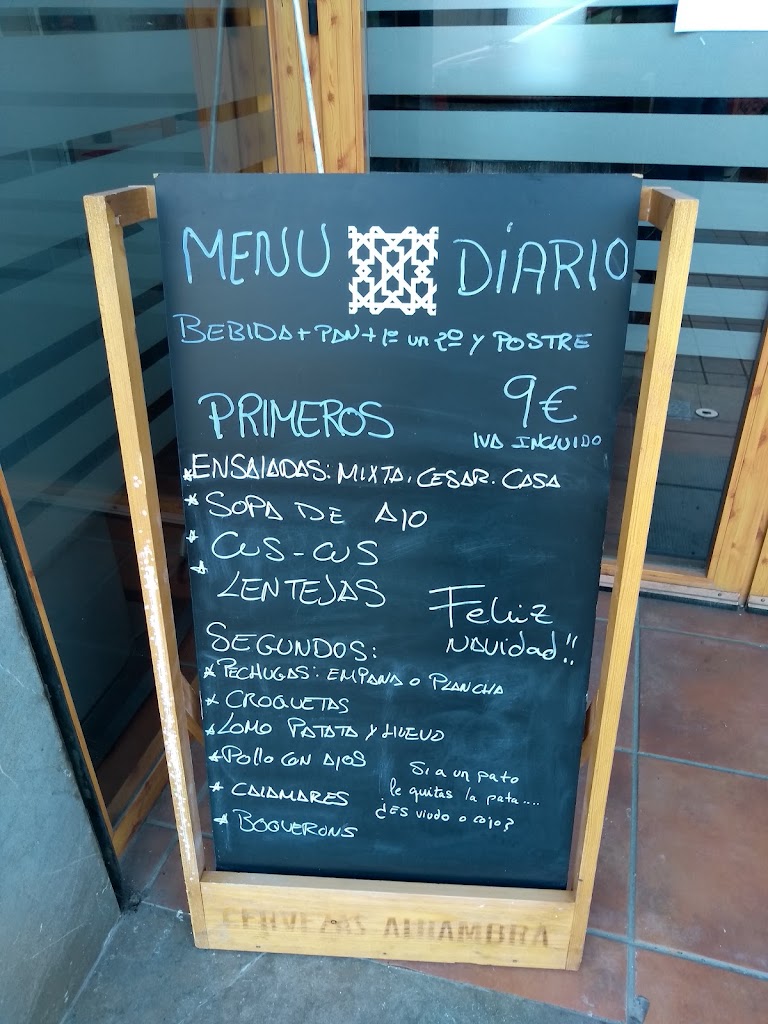 MENU DIARIO
BEBIDA + PAN + 1º un 2º y POSTRE
9€
IVA INCLUIDO
PRIMEROS
* ENSALADAS: MIXTA, CESAR. CASA
* SOPA DE AJO
* CUS-CUS
* LENTEJAS
Feliz
NAVIDAD!!
SEGUNDOS:
* PECHUGAS: EMPANA O PLANCHA
* CROQUETAS
* LOMO PATATA Y HUEVO
* POLLO CON AJOS
* CALAMARES
* BOQUERONS
Si a un pato
le quitas la pata....
¿ES viudo o cojo?
CERVEZAS ALHAMBRA